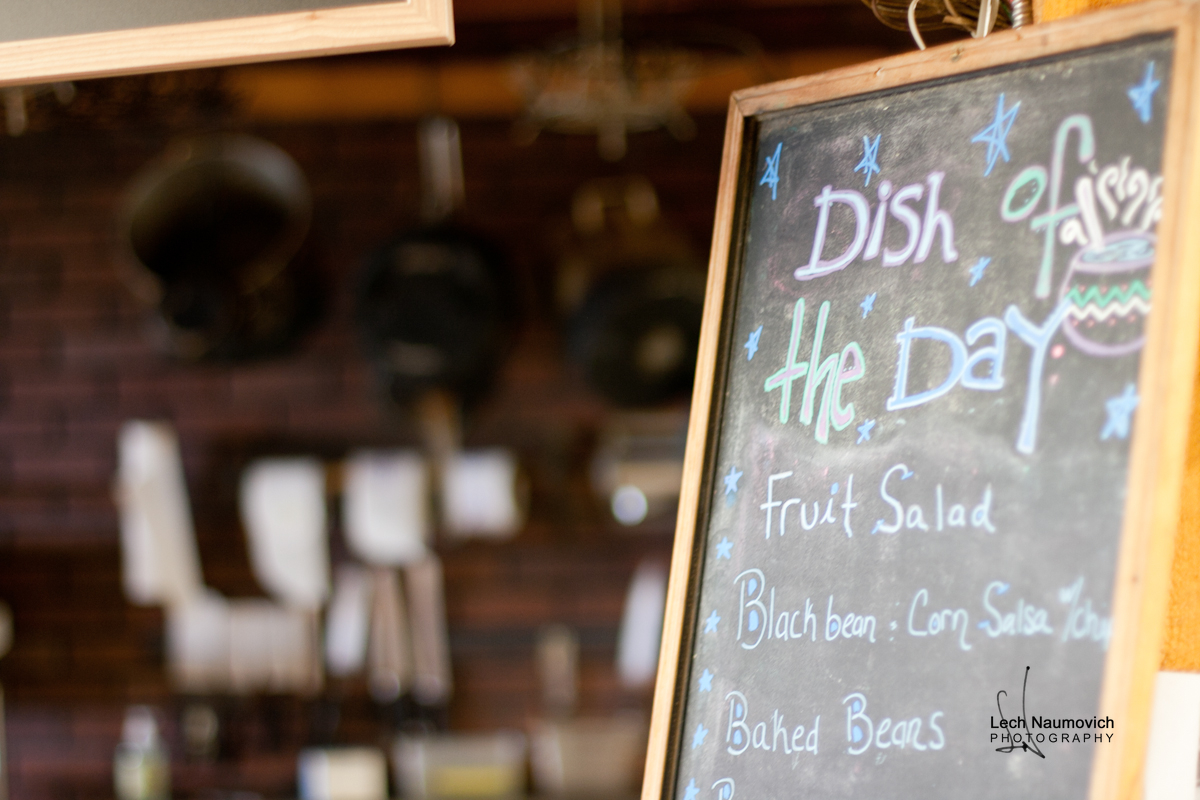 Dish of
the Day
Fruit Salad
Blackbean : Corn Salsa w/
Baked Beans
Lech Naumovich
PHOTOGRAPHY